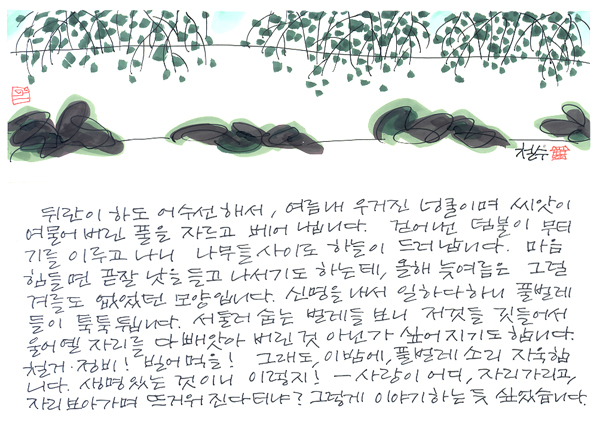 철수
뒤란이 하도 어수선해서, 여름내 우거진 넝쿨이며 씨앗이
여물어버린 풀을 자르고 베어 냅니다. 걷어낸 덤불이 무더
기를 이루고 나니 나무들 사이로 하늘이 드러납니다. 마음
힘들면 곧잘 낫을 들고 나서기도 하는데, 올해 늦여름은 그럴
겨를도 없었던 모양입니다. 신명을 내서 일하다하니 풀벌레
들이 툭툭 튑니다. 서둘러 숨는 벌레들 보니 저것들 깃들어서
울어옐 자리를 다 빼앗아 버린 것 아닌가 싶어지기도 합니다.
철거·정비! 빌어먹을! 그래도, 이밤에, 풀벌레 소리 자욱합
니다. 생명있는 것이니 이렇지! — 사랑이 어디, 자리가리고,
자리보아가며 뜨거워진다더냐? 그렇게 이야기하는 듯 싶었습니다.